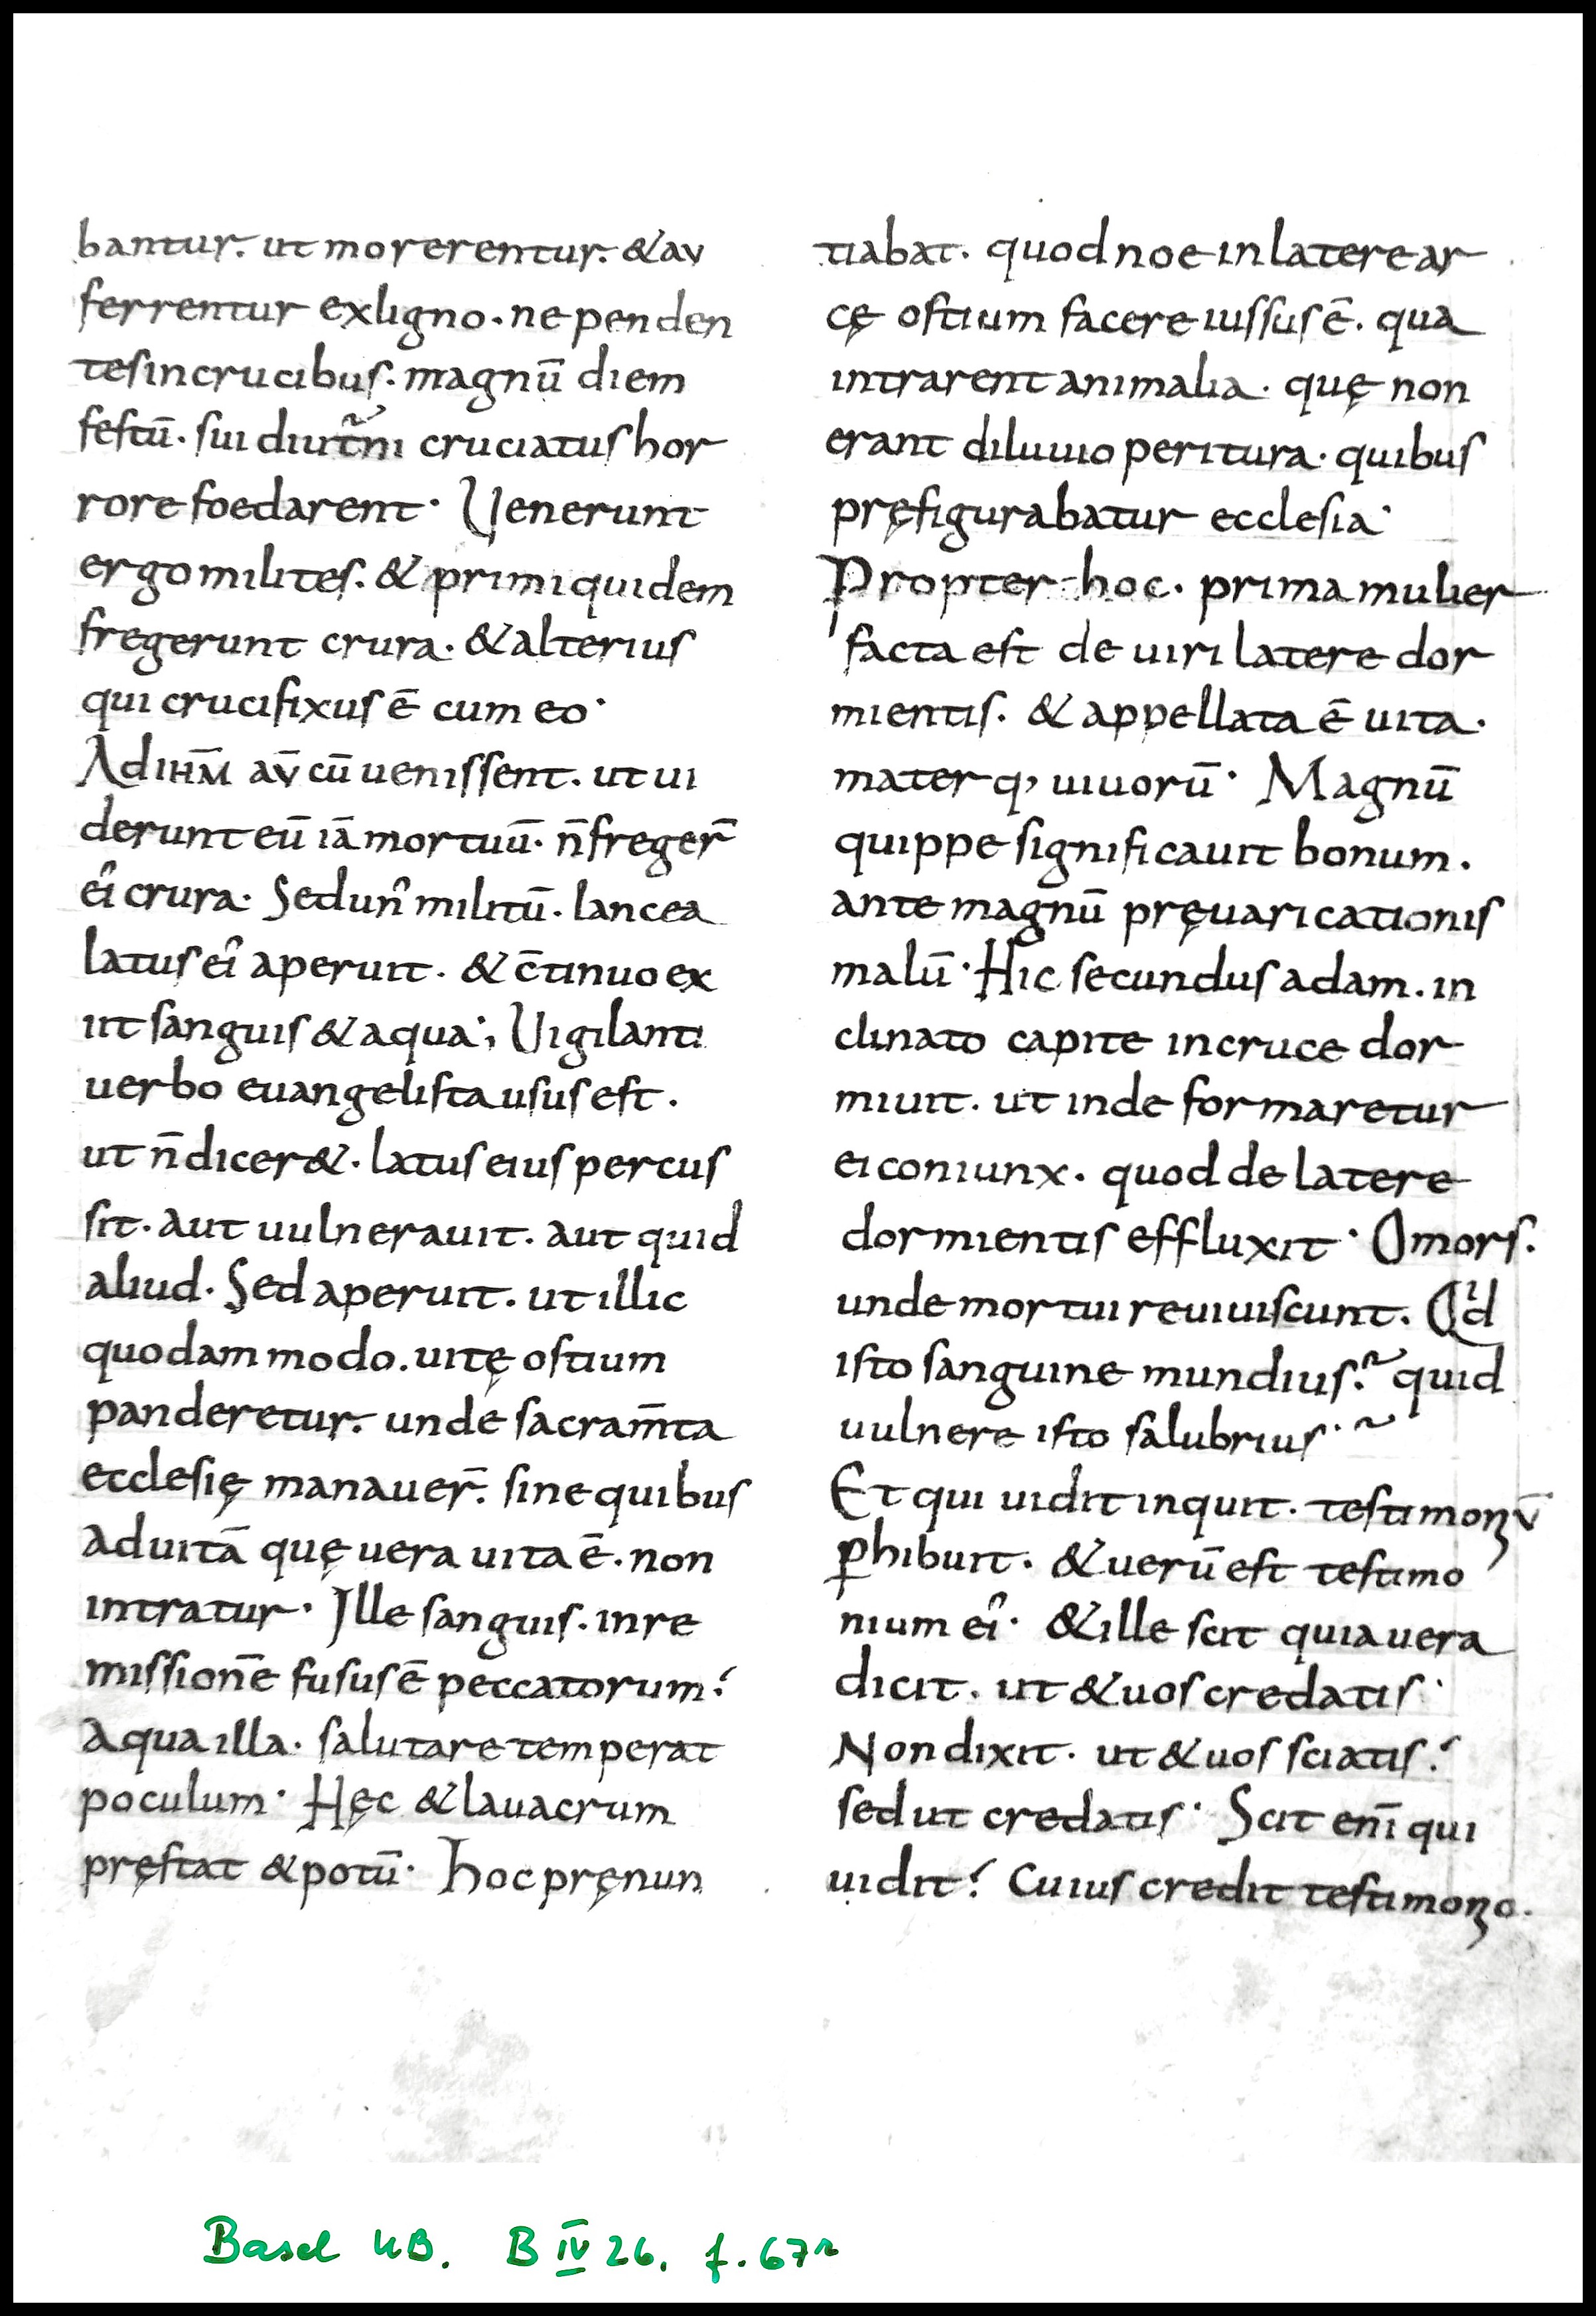 bantur. ut morerentur. & au
ferrentur ex ligno. ne penden
tes in crucibus. magnū diem
festū. sui diut̄ni cruciatus hor
rore foedarent· Uenerunt
ergo milites. & primi quidem
fregerunt crura. & alterius
qui crucifixus ē cum eo·
Ad ihm̄ aū cū uenissent. ut ui
derunt eū iā mortuū. n̄ freger̄
ei᾽ crura. Sed un᾽ militū. lancea
latus ei᾽ aperuit. & c̄tinuo ex
iit sanguis & aqua·, Uigilanti
uerbo euangelista usus est.
ut n̄ dicer&. latus eius percus
sit. aut uulnerauit. aut quid
aliud. Sed aperuit. ut illic
quodam modo. uitę ostium
panderetur. unde sacram̄ta
ecclesię manauer̄. sine quibus
ad uitā quę uera uita ē. non
intratur· Ille sanguis. in re
missionē fusus ē peccatorum.
aqua illa. salutare temperat
poculum· Hęc & lauacrum
pręstat & potū· Hoc pręnun
tiabat. quod noe in latere ar
cę ostium facere iussus ē. qua
intrarent animalia. quę non
erant diluuio peritura. quibus
pręfigurabatur ecclesia·
Propter hoc. prima mulier
facta est de uiri latere dor
mientis. & appellata ē uita.
mater q, uiuorū· Magnū
quippe significauit bonum.
ante magnū pręuaricationis
malū· Hic secundus adam. in
clinato capite in cruce dor
miuit. ut inde formaretur
ei coniunx. quod de latere
dormientis effluxit· O mors.
unde mortui reuiuiscunt. Qⁱd
isto sanguine mundius? quid
uulnere isto salubrius?
Et qui uidit inquit. testimonıū
ꝑhibuit. & uerū est testimo
nium ei᾽· & ille scit quia uera
dicit. ut & uos credatis·
Non dixit. ut & uos sciatis.
sed ut credatis· Scit enī qui
uidit. Cuius credit testimonio.
Basel UB. B IV 26. f. 67r